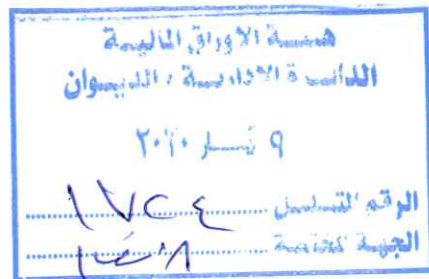 هيئة الاوراق المالية
الدائرة الادارية / الديوان
٩ ٢٠٢٠
الرقم المتسلسل ١٧٢٤
الجهة المختصة